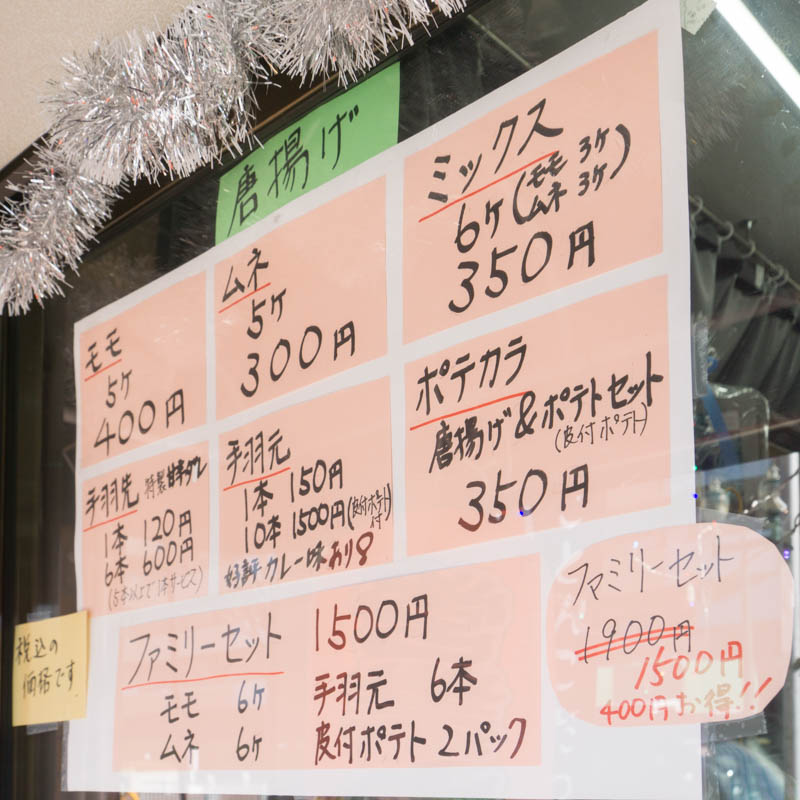 唐揚げ
ミックス
6ケ(モモ 3ケ
ムネ 3ケ)
350円
ムネ
5ケ
300円
モモ
5ケ
400円
ポテカラ
唐揚げ&ポテトセット
(皮付ポテト)
350円
手羽元
1本 150円
10本 1500円(皮付ポテト付)
好評カレー味あり
手羽先 特製甘辛ダレ
1本 120円
6本 600円
(5本以上で1本サービス)
ファミリーセット 1500円
モモ 6ケ 手羽元 6本
ムネ 6ケ 皮付ポテト 2パック
ファミリーセット
1900円
1500円
400円お得!!
税込の
価格です